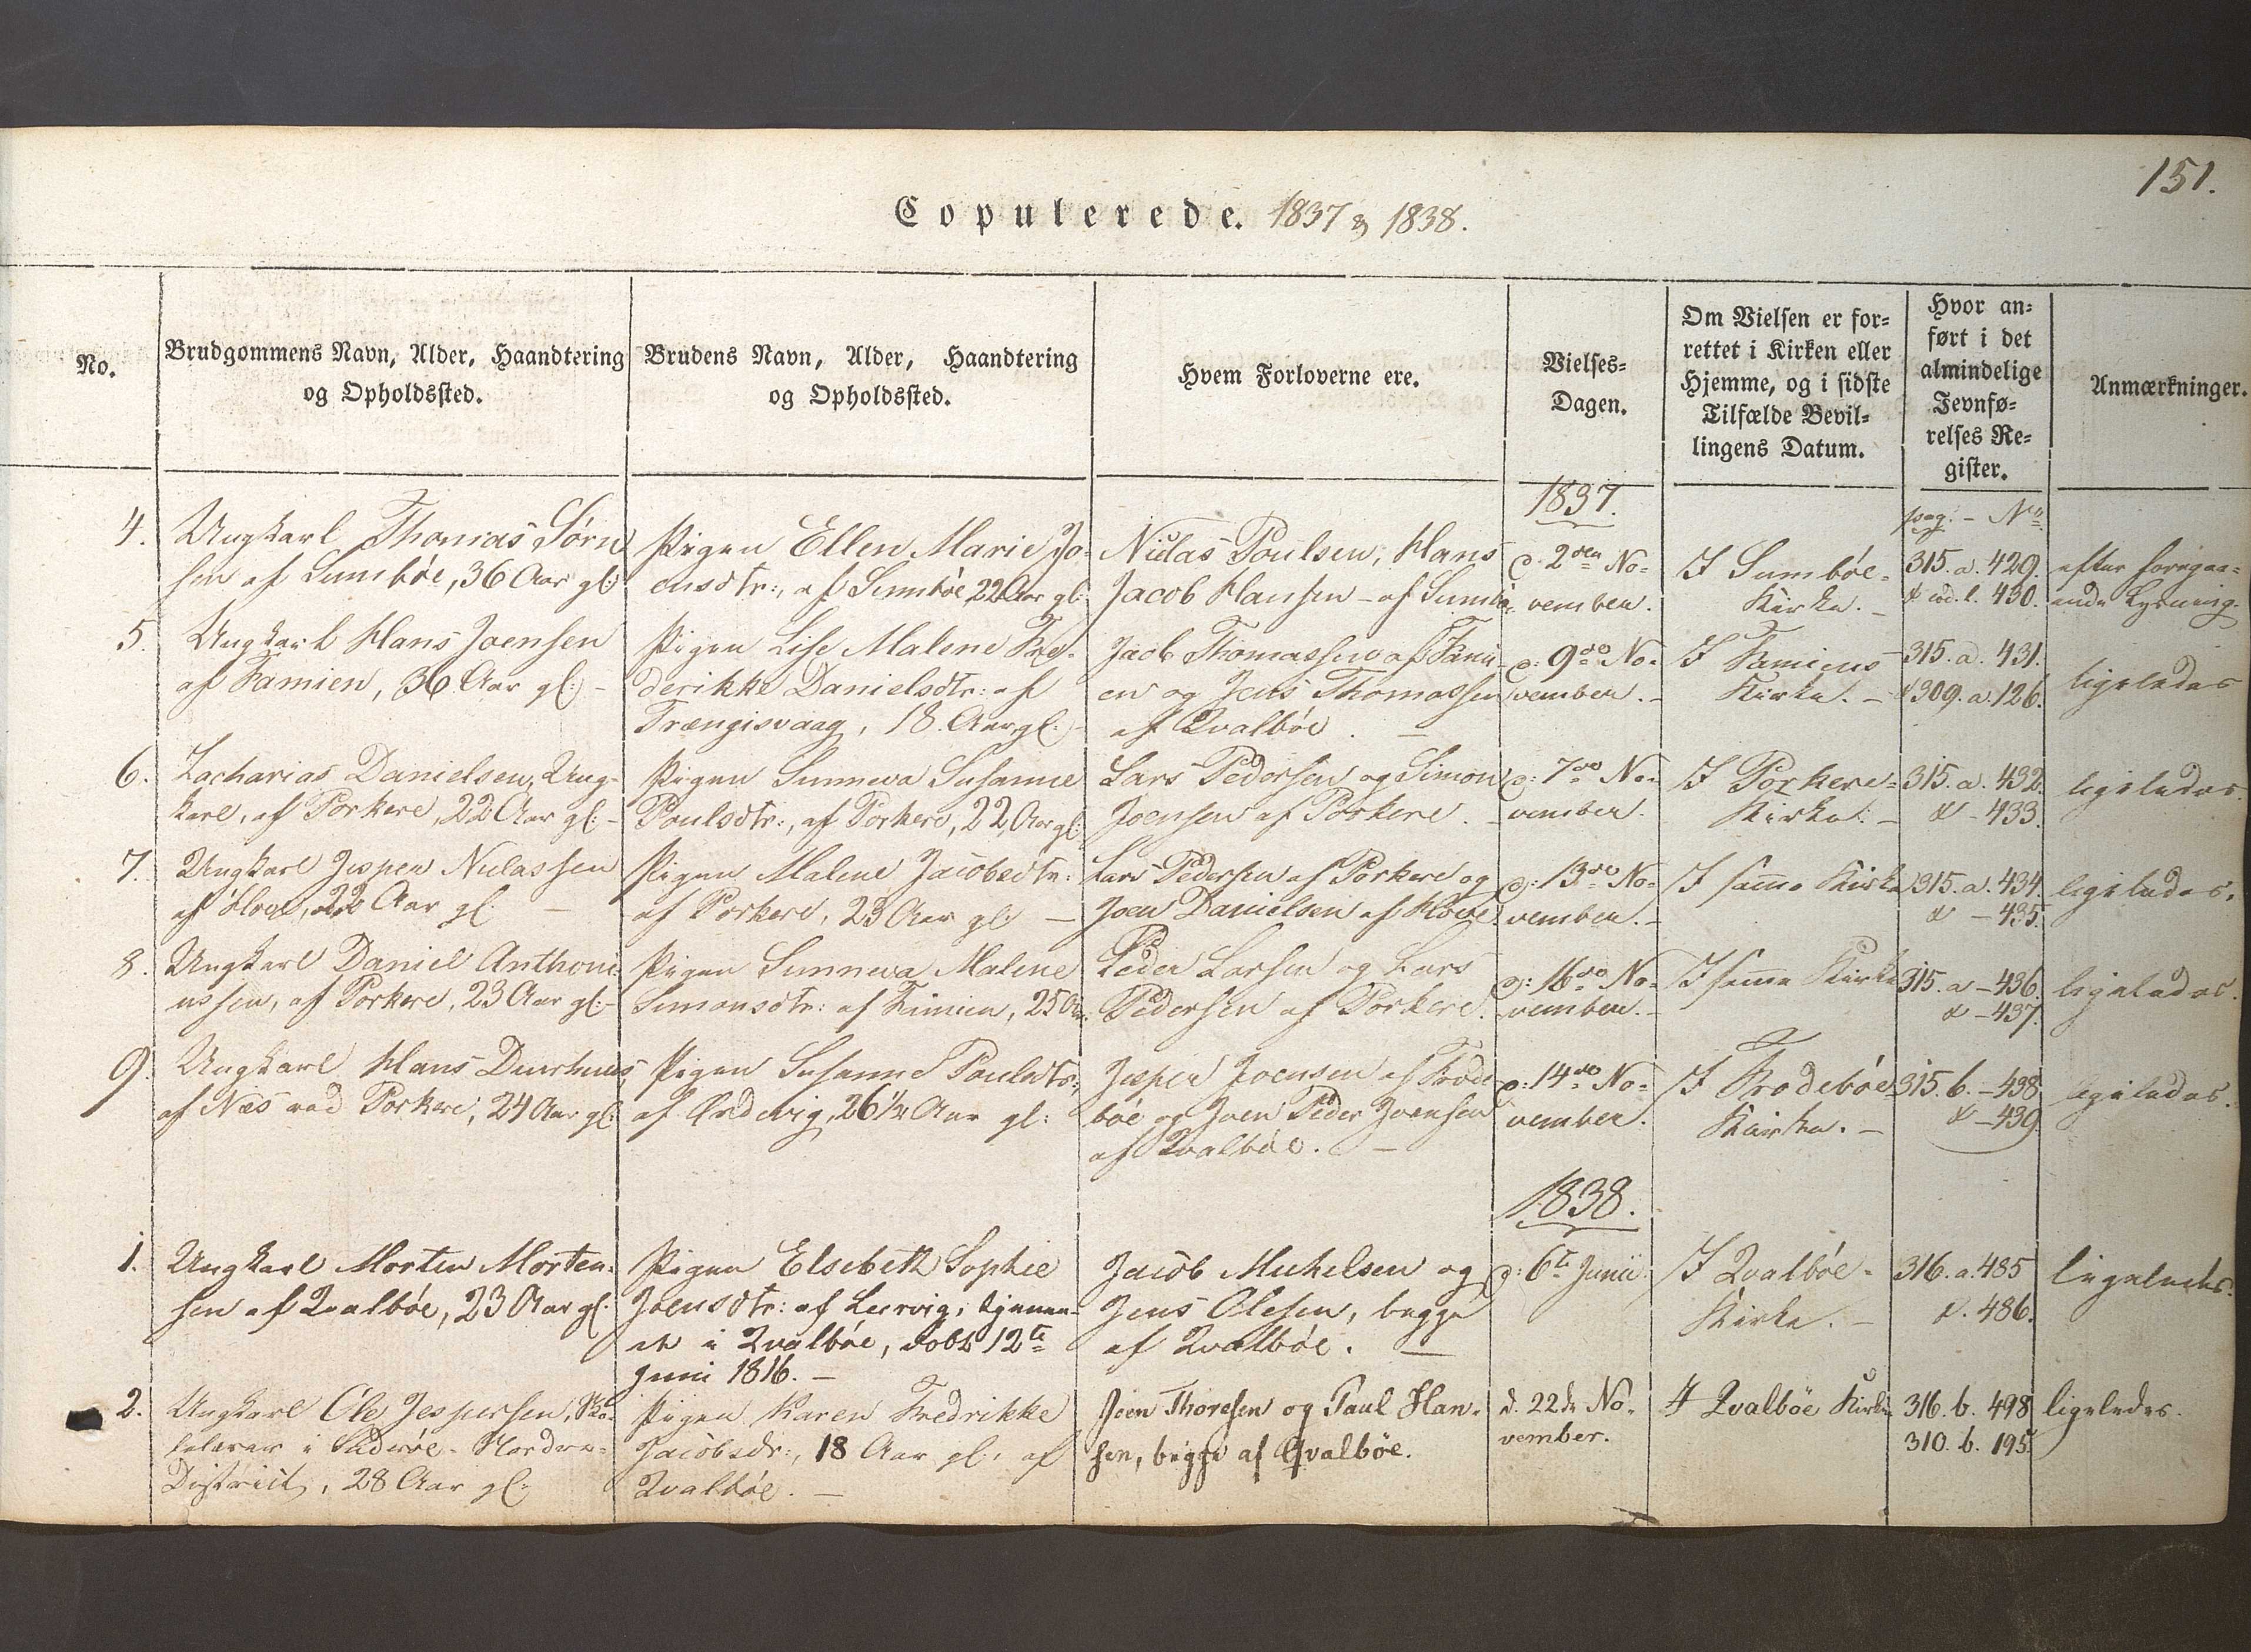 151.
Copulerede. 1837 & 1838.
No.
Brudgommens Navn, Alder, Haandtering
og Opholdssted.
Brudens Navn, Alder, Haandtering
og Opholdssted.
Hvem Forloverne ere.
Vielses-
Dagen.
Om Vielsen er for-
rettet i Kirken eller
Hjemme, og i sidste
Tilfælde Bevil-
lingens Datum.
Hvor an-
ført i det
almindelige
Jevnfø-
relses Re-
gister.
Anmærkninger.
1837.
pag. - No
4.
Ungkarl Thomas Sørn
sen af Sumbøe, 36 Aar gl:
Pigen Ellen Marie Jo-
ensdtr:, af Sumbøe 22 Aar gl:
Niclas Poulsen, Hans
Jacob Hansen - af Sumbø
d. 2den No-
vember.
I Sumbøe-
Kirke. -
315. a. 429.
& 430.
efter foregaa-
ende Lysning.
5.
Ungkarl Hans Joensen
af Famien, 36 Aar gl: -
Pigen Lise Malene Fre-
derikke Danielsdtr: af
Trængisvaag, 18 Aar gl: -
Jacb Thomassen af Fami-
en og Jens Thomassen
af Qvalbøe. -
d: 9de No-
vember. -
I Famiens
Kirke. -
315. a. 431.
& 309. a. 126.
ligeledes
6.
Zacharias Danielsen, Ung-
karl, af Porkere, 22 Aar gl: -
Pigen Sunneva Susanne
Poulsdtr:, af Porkere, 22 Aar gl:
Lars Pedersen og Simon
Joensen af Porkere. -
d: 7de No-
vember.
I Porkere-
Kirke. -
315. a. 432.
& - 433.
ligeledes.
7.
Ungkarl Jesper Niclassen
af Hove, 22 Aar gl. -
Pigen Malene Jacobsdtr:
af Porkere, 23 Aar gl: -
Lars Pedersen af Porkere og
Joen Danielsen af Hove.
d: 13de No-
vember. -
I samme Kirke
315. a. 434.
& - 435.
ligeledes.
8.
Ungkarl Daniel Anthoni-
ussen, af Porkere, 23 Aar gl: -
Pigen Sunneva Malene
Simonsdtr: af Famien, 25 Aar
Peder Larsen og Lars
Pedersen af Porkere.
d: 16de No-
vember. -
I samme Kirke
315. a - 436.
& - 437.
ligeledes.
9.
Ungkarl Hans Duurhuus
af Næs ved Porkere, 24 Aar gl:
Pigen Susanne Poulsdtr:,
af Ördevig, 26 1/2 Aar gl:
Jesper Joensen af Frode-
bøe og Joen Peder Joensen
af Qvalbøe. -
d: 14de No-
vember.
I Frodebøe-
Kirke. -
315. b. - 438
& - 439.
ligeledes.
1838.
1.
Ungkarl Morten Morten-
sen af Qvalbøe, 23 Aar gl:
Pigen Elsebeth Sophie
Joensdtr: af Leervig, tjenen-
de i Qvalbøe, døbt 12te
Juni 1816. -
Jacob Michelsen og
Jens Olesen, begge
af Qvalbøe. -
d: 6te Junii
I Qvalbøe-
Kirke. -
316. a. 485
&. 486.
ligeledes.
2.
Ungkarl Ole Jespersen, Sko-
lelærer i Suderøe-Nordre-
District, 28 Aar gl:
Pigen Karen Fredrikke
Jacobsdr:, 18 Aar gl: af
Qvalbøe. -
Joen Thoresen og Paul Han-
sen, begge af Qvalbøe.
d. 22de No-
vember.
I Qvalbøe Kirke
316. b. 498
310. b. 195.
ligeledes.